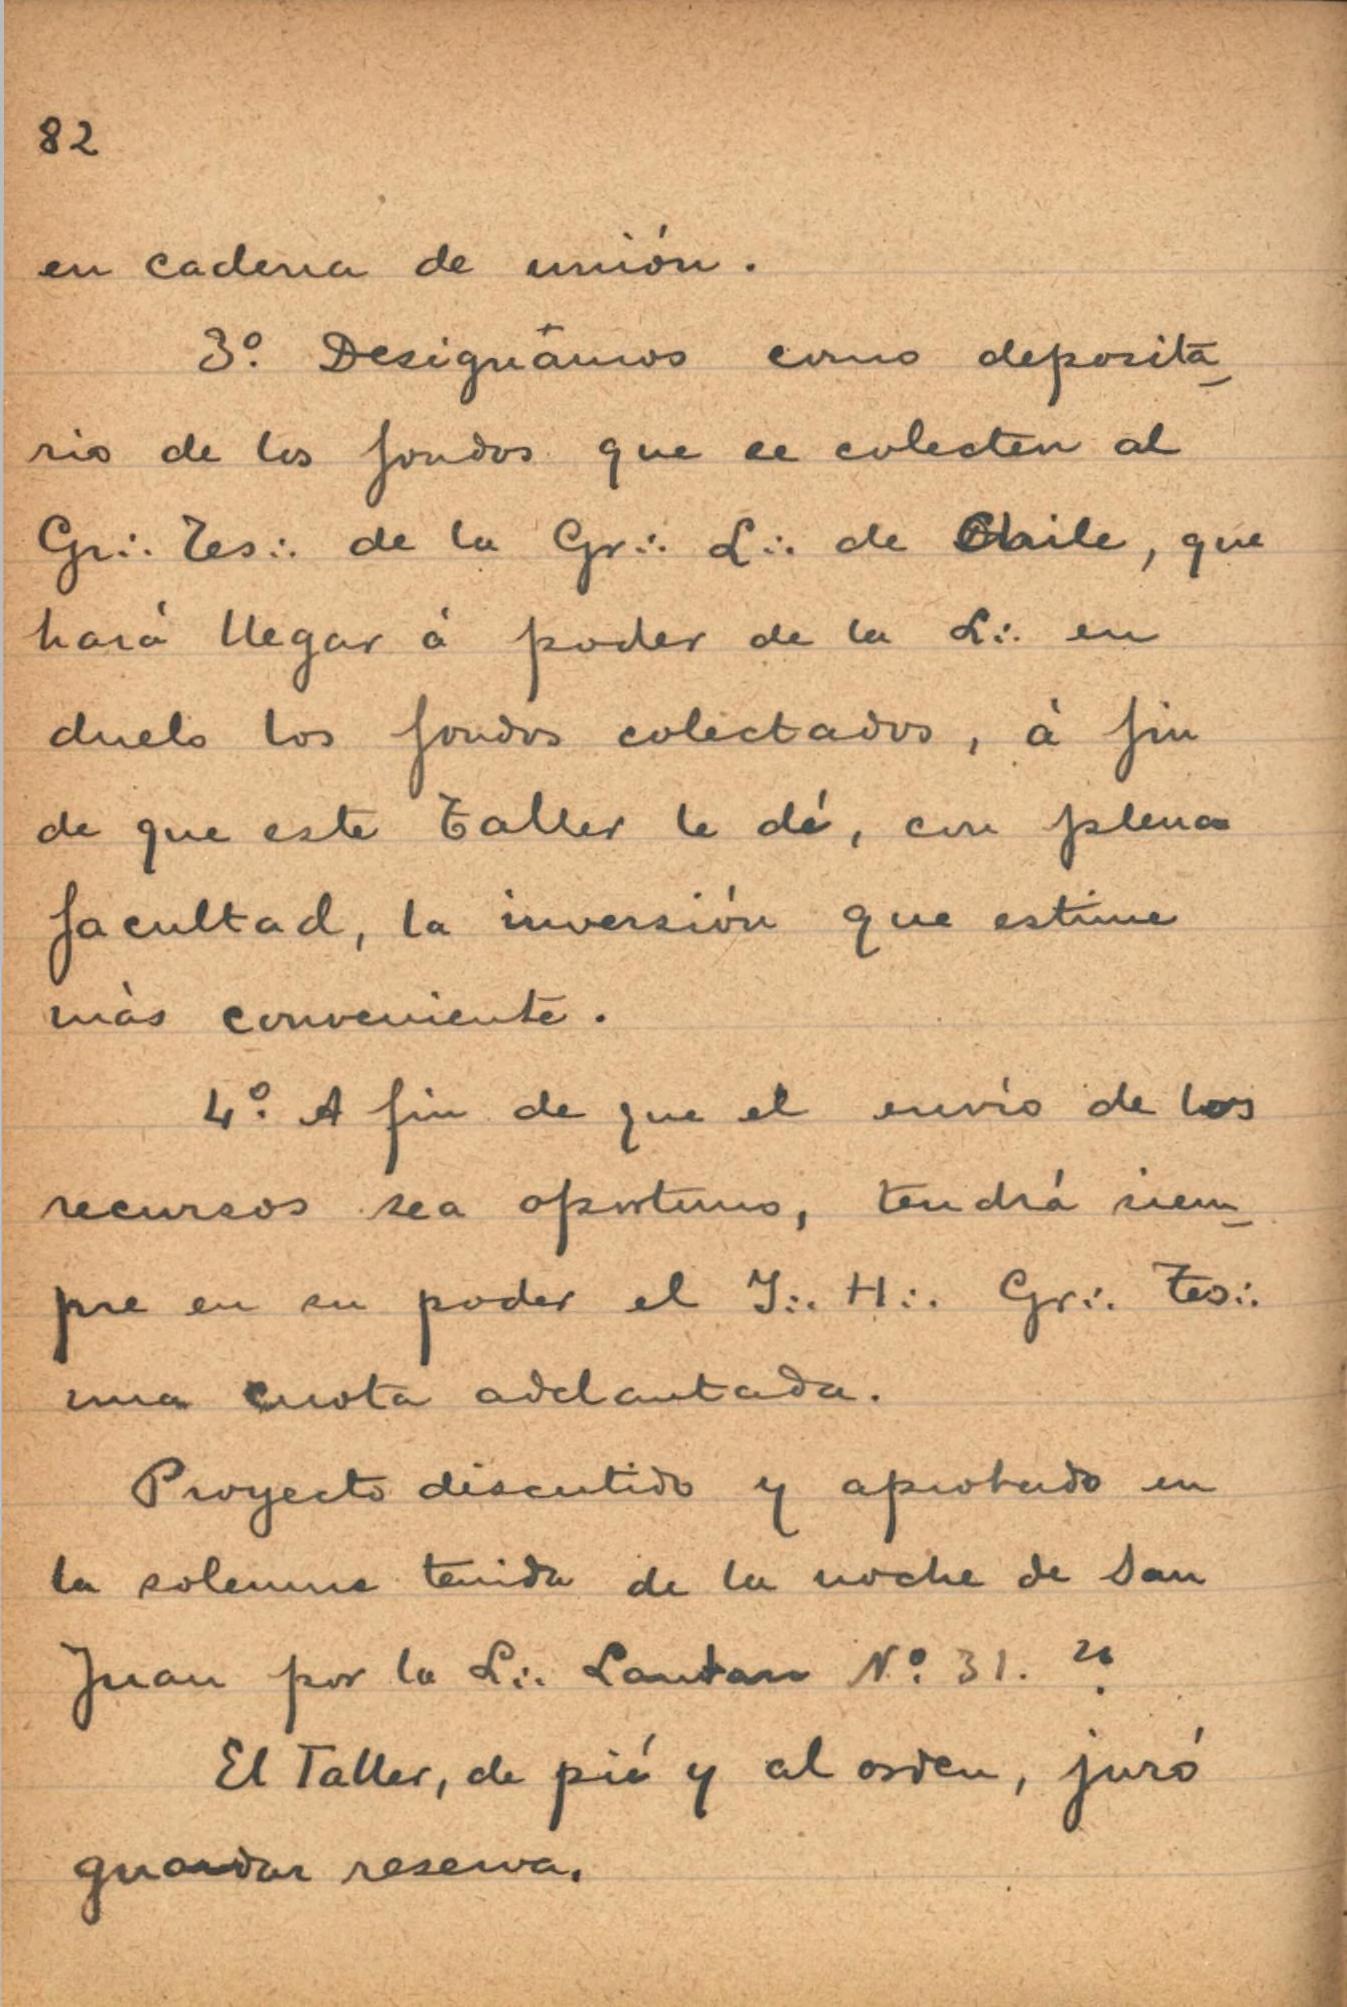 82
en cadena de unión.
3º. Designámos como deposita_
rio de los fondos que se colecten al
Gr∴ Tes∴ de la Gr∴ L∴ de Chile, que
hará llegar á poder de la L∴ en
duelo los fondos colectados, á fin
de que este Taller le dé, con plena
facultad, la inversión que estime
más conveniente.
4º. A fin de que el envío de los
recursos sea oportuno, tendrá siem_
pre en su poder el I∴ H∴ Gr∴ Tes∴
una cuota adelantada.
Proyecto discutido y aprobado en
la solemne tenida de la noche de San
Juan por la L∴ Lautaro Nº. 31.
El Taller, de pié y al orden, juró
guardar reserva.